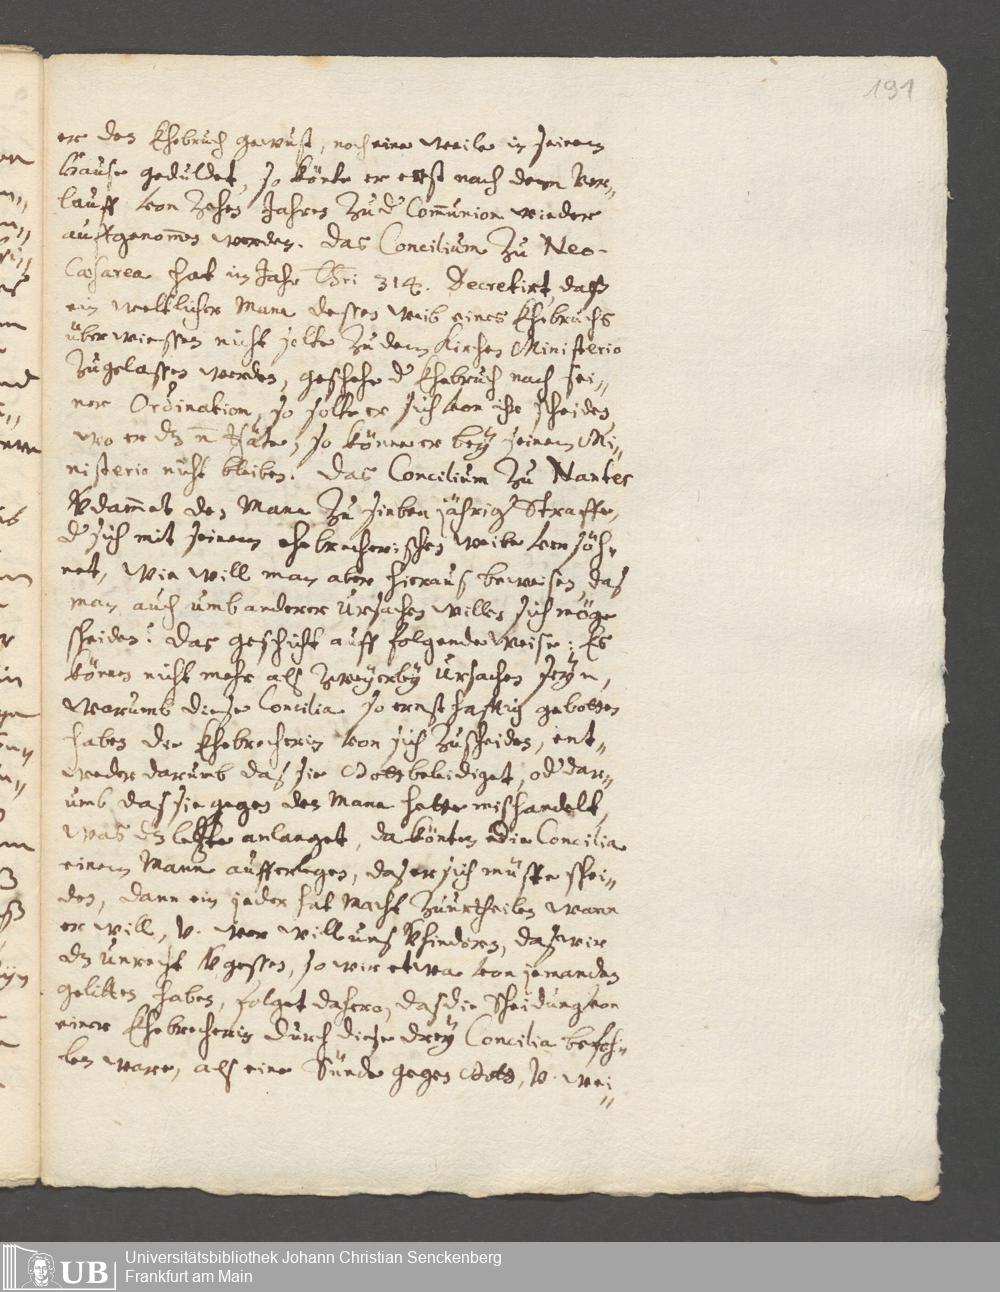 191
er den Ehebruch gewust, noch eine weile in seinem
Hause geduldet, so könte er erst nach dem Ver„
lauff von Zehen Jahren Zu d' Com̅union wieder
auffgenom̅en werden. Das Concilium Zu Neo-
Caesarea hat im Jahr Chri 314. Decretirt, daß
ein weltlicher Mann dessen weib eines Ehebruchs
überwiessen nicht solte Zu dem Kirchen Ministerio
Zugelassen werden, geschehe d' Ehebruch nach sei„
ner Ordination, so solte er sich von ihr scheiden
wo er dz n̅ thäte, so könne er beÿ seinem Mi„
nisterio nicht bleiben. Das Concilium Zu Nantes
Vdam̅et den Mann Zu sieben jährig' Straffe,
d' sich mit seinem ehebrecherischen weibe versöh„
net, Wie will man aber hieraus beweisen, das
man auch umb anderer Ursachen willen sich möge
scheiden? Das geschicht auff folgende Weise: Es
können nicht mehr als Zweÿerleÿ Ursachen seÿn,
Warumb diese Concilia so ernsthafftig gebotten
haben die Ehebrecherin von sich Zuscheiden, ent„
weder darumb das sie Gott beleidiget, od' dar„
umb das sie gegen den Mann hette mishandelt,
was dz letzte anlanget, da könten die Concilia
einem Mann aufferlegen, das er sich müste schei„
den, dann ein jeder hat Macht Zuurtheilen wann
er will, V. wer will uns Vhindern, das wir
dz Unrecht Vgessen, so wir etwa von jemanden
gelitten haben, folget dahero, das die Scheidung von
einer Ehebrecherin durch diese dreÿ Concilia befoh„
len ware, als eine Sünde gegen Gott, V. wei„
Universitätsbibliothek Johann Christian Senckenberg
UB
Frankfurt am Main